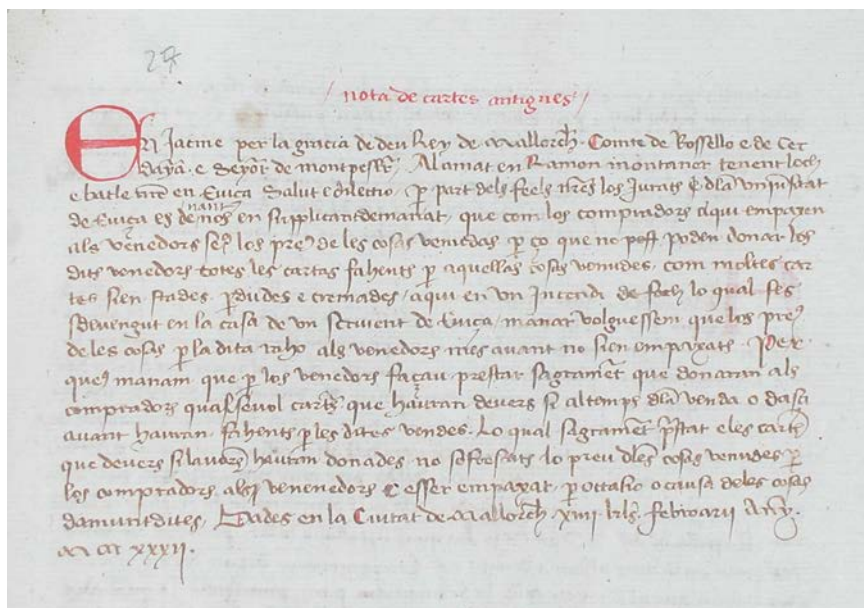 27
nota de cartes antigues
En Jacme per la gracia de deu Rey de Mallorch. Comte de Rossello e de Cer
daya. e Seyor de montpesller. Al amat en Ramon montaner tenent loch
e batle nre en Eviça Salut e dilectio. per part dels feels nres los Jurats e dla universitat
de Eviça es denant nos en supplicant demanat, que com los compradors aqui empaxen
als venedors los preus de les cosas venudas per ço que no poden donar los
dits venedors totes les cartas fahents per aquellas cosas venudes, com moltes car
tes sien stades perdudes e cremades, aqui en un Incendi de foch lo qual ses
sdevengut en la casa de un scrivent de Eviça, manar volguessem que los preus
de les cosas per la dita raho als venedors mes avant no sien empaxats. Per
queus manam que per los venedors façau prestar sagrament que donaran als
compradors qualsevol cartes que hauran devers si al temps dla venda o dasi
avant hauran, fahents per les dites vendes. Lo qual sagrament prestat e les cartes
que devers si lavors hauran donades, no soffirats lo preu dles cosas venudes per
los compradors als venenedors esser empaxat, per occasio o causa deles cosas
damunt dites, Dades en la Ciutat de Mallorch. xiiii kls. febroarii Any.
M CCC xxxii.